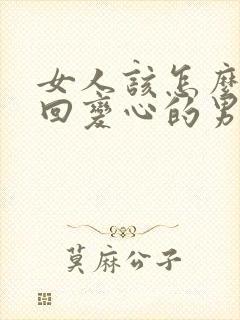 女人該怎麼
回變心的男
莫麻公子